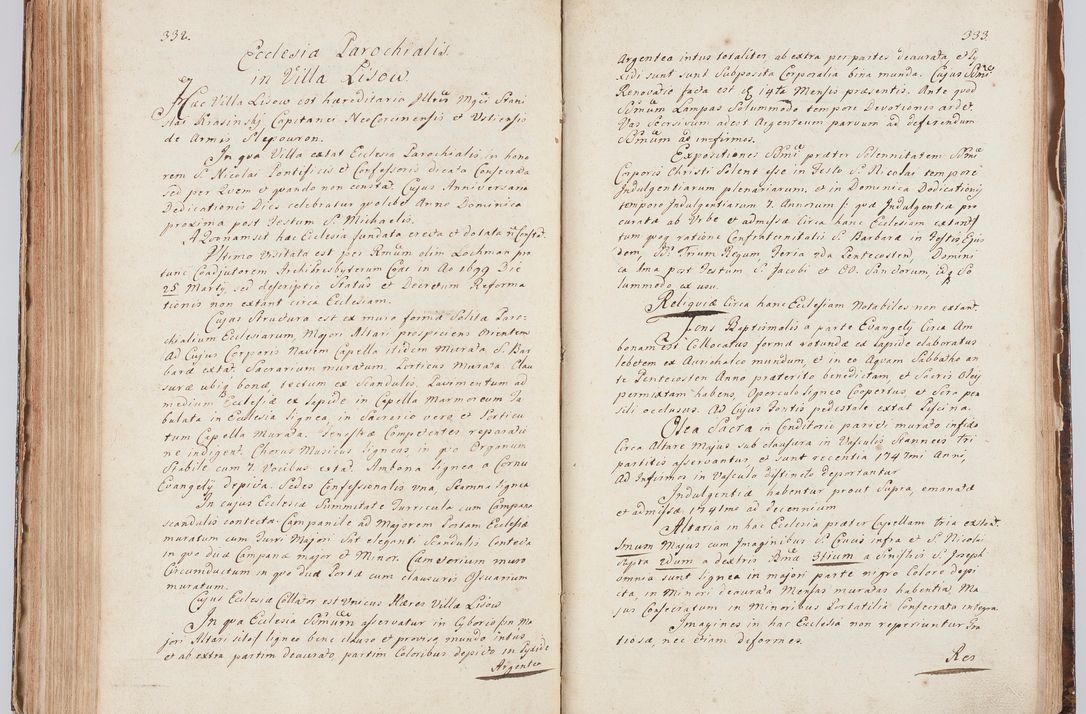 332.
Ecclesia Parochialis
in Villa Lisow
Hac Villa Lisow est hæreditaria Illris Mgci Stani
slai Krasinsky Capitanei NeoCorcinensis et Usticensis
de Armis Slepowron.
In qua Villa extat Ecclesia Parochialis in hono
rem S. Nicolai Pontificis et Confessoris dicata Consecrata
sed per Quem et quando non constat. Cujus Anniversaria
Dedicationis Dies celebratur quolibet Anno Dominica
proxima post Festum S. Michaelis.
A Quonam sit hæc Ecclesia fundata erecta et dotata n Constat.
Ultimo visitata est per Rmum olim Lochman pro
tunc Coadjutorem Archibresbyterum Cgac in Ao 1699 Die
25 Martij, sed descriptio Status et Decretum Reforma
tionis non extant circa Ecclesiam.
Cujus Structura est ex muro forma Solita Paro-
chialium Ecclesiarum, Majori Altari prospiciens Orientem
Ad Cujus Corporis Navem Capella itidem Murata S. Bar
bara extat. Sacrarium muratum. Porticus Murata. Clau
suræ ubiq bonæ, tectum ex Scandulis. Pavimentum ad
medium Ecclesiæ ex lapide in Capella Marmoreum Ta
bulata in Ecclesia lignea, in Sacrario vero et Porticu
tum Capella Murata. Fenestræ Competentes reparatio
ne indigent. Chorus Musicus ligneus in quo Organum
Stabile cum 7. Vocibus extat. Ambona lignea a Cornu
Evangely depicta. Sedes Confessionalis una, Scamna lignea
In cujus Ecclesiæ Summitate Turricula cum Campana
scandulis contecta. Campanile ad Majorem Portam Ecclesiæ
muratum cum Turri Majori Sat eleganti Scandulis Contecta
in qua duæ Campanæ major et Minor. Cæmeterium muro
Circumductum in quo duæ Portæ cum clausuris Ossuarium
muratum.
Cujus Ecclesiæ Collator est Unicus Hæres Villæ Lisow
In qua Ecclesia SSmum asservatur in Cyborio in Ma
jori Altari ligneo bene clauso et proviso, mundo intus
et ab extra partim deaurato, partim Coloribus depicto in Pyxide
Argentea
333.
Argentea intus totaliter, ab extra per partes deaurata, et Py
xidi sunt sunt Subposita Corporalia bina munda. Cujus SSmi
Renovatio facta est 14ta Mensis præsentis. Ante quod
SSmum Lampas Solummodo tempore Devotionis ardet.
Vas Secrsivum adest Argenteum parvum ad deferendum
SSmum ad infirmos.
Expositiones SSmi præter Solennitatem SSmi
Corporis Christi Solent esse in Festo S. Nicolai tempore
Indulgentiarum plenariarum, et in Dominica Dedicationis
tempore Indulgentiarum 7. Annorum quæ Indulgentiæ pro
curatæ ab Urbe et admissæ Circa hanc Ecclesiam extant
tum pro ratione Confraternitatis S. Barbaræ in Festis Ejus
dem, SS. Trium Regum, Feria 2da Pentecostes, Domini
ca Ima post Festum S. Jacobi et OO. Sanctorum, So
lummodo ex usu.
Reliquiæ Circa hanc Ecclesiam Notabiles non extant.
Fons Baptismalis a parte Evangely Circa Am
bonam est Collocatus forma rotunda ex lapide elaboratus
lebetem ex Aurichalco mundum, et in eo Aquam Sabbatho an
te Pentecosten Anno præterito benedictam, et Sacris Oleis
permixtam habens, Operculo ligneo Coopertus, et Sera pen
sili occlusus. Ad Cujus Fontis pedestale extat Piscina.
Olea Sacra in Conditorio parieti murato infixo
Circa Altare Majus sub clausura in Vasculis Stanneis tri
partitis asservantur, et sunt recentia 1747mi Anni,
Ad Infirmos in Vasculo distincto deportantur
Indulgentiæ habentur prout Supra, emanatæ
et admissæ 1741mo ad decennium
Altaria in hac Ecclesia præter Capellam tria extant.
Imum Majus cum Imaginibus S. Crucis infra et S. Nicolai
supra 2dum a dextris Bmæ 3tium a Sinistris S. Joseph
omnia sunt lignea in majori parte nigro Colore depi
cta, in Minori deaurata Mensas muratas habentia, Ma
jus Consecratum in Minoribus Portatilia Consecrata integra
Imagines in hac Ecclesia non reperiuntur Gra
tiosæ, nec etiam deformes.
Res